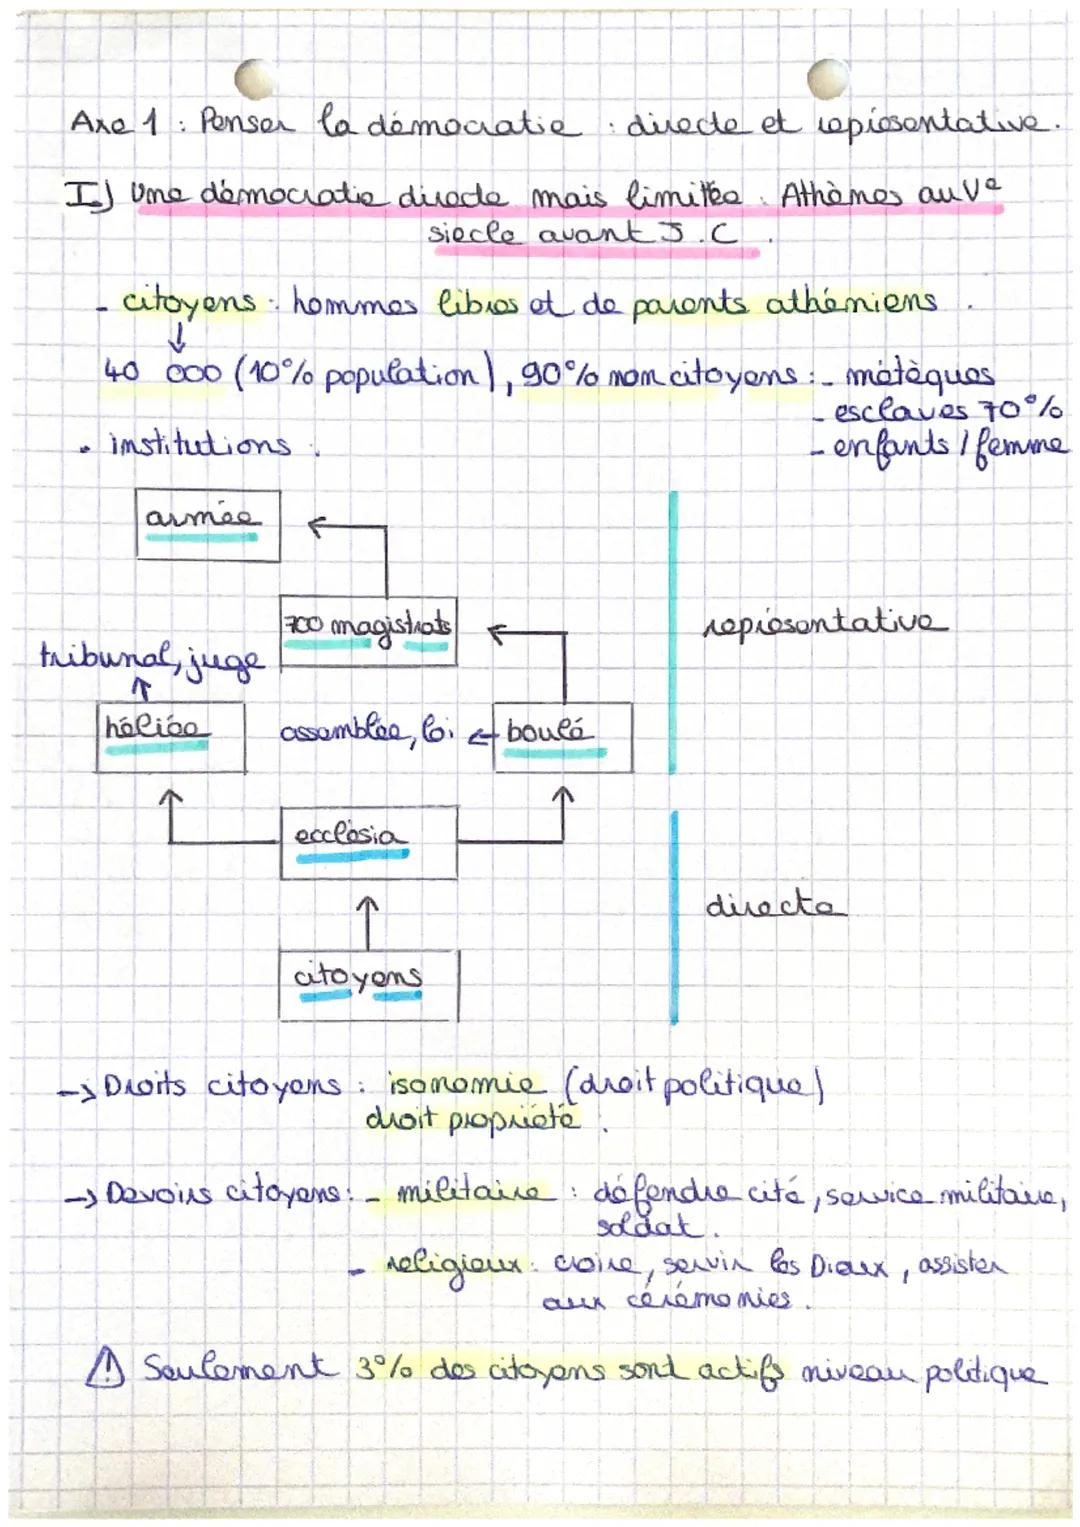 Axe 1 : Penser la démocratie : directe et représentative.
I) Une démocratie directe mais limitée : Athènes au Ve
siecle avant J.C.
- citoyens : hommes libres et de parents athéniens.
↓
40 000 (10% population), 90% non citoyens : - métèques
- esclaves 70%
- enfants / femme
• institutions :
armée
700 magistrats
représentative
tribunal, juge
↑
héliée
assemblée, loi ← boulé
ecclésia
directe
citoyens
-> Droits citoyens : isonomie (droit politique)
droit propriété.
-> Devoirs citoyens : - militaire : défendre cité, service militaire,
soldat.
- religieux : croire, servir les Dieux, assister
aux cérémonies.
⚠ Seulement 3% des citoyens sont actifs niveau politique